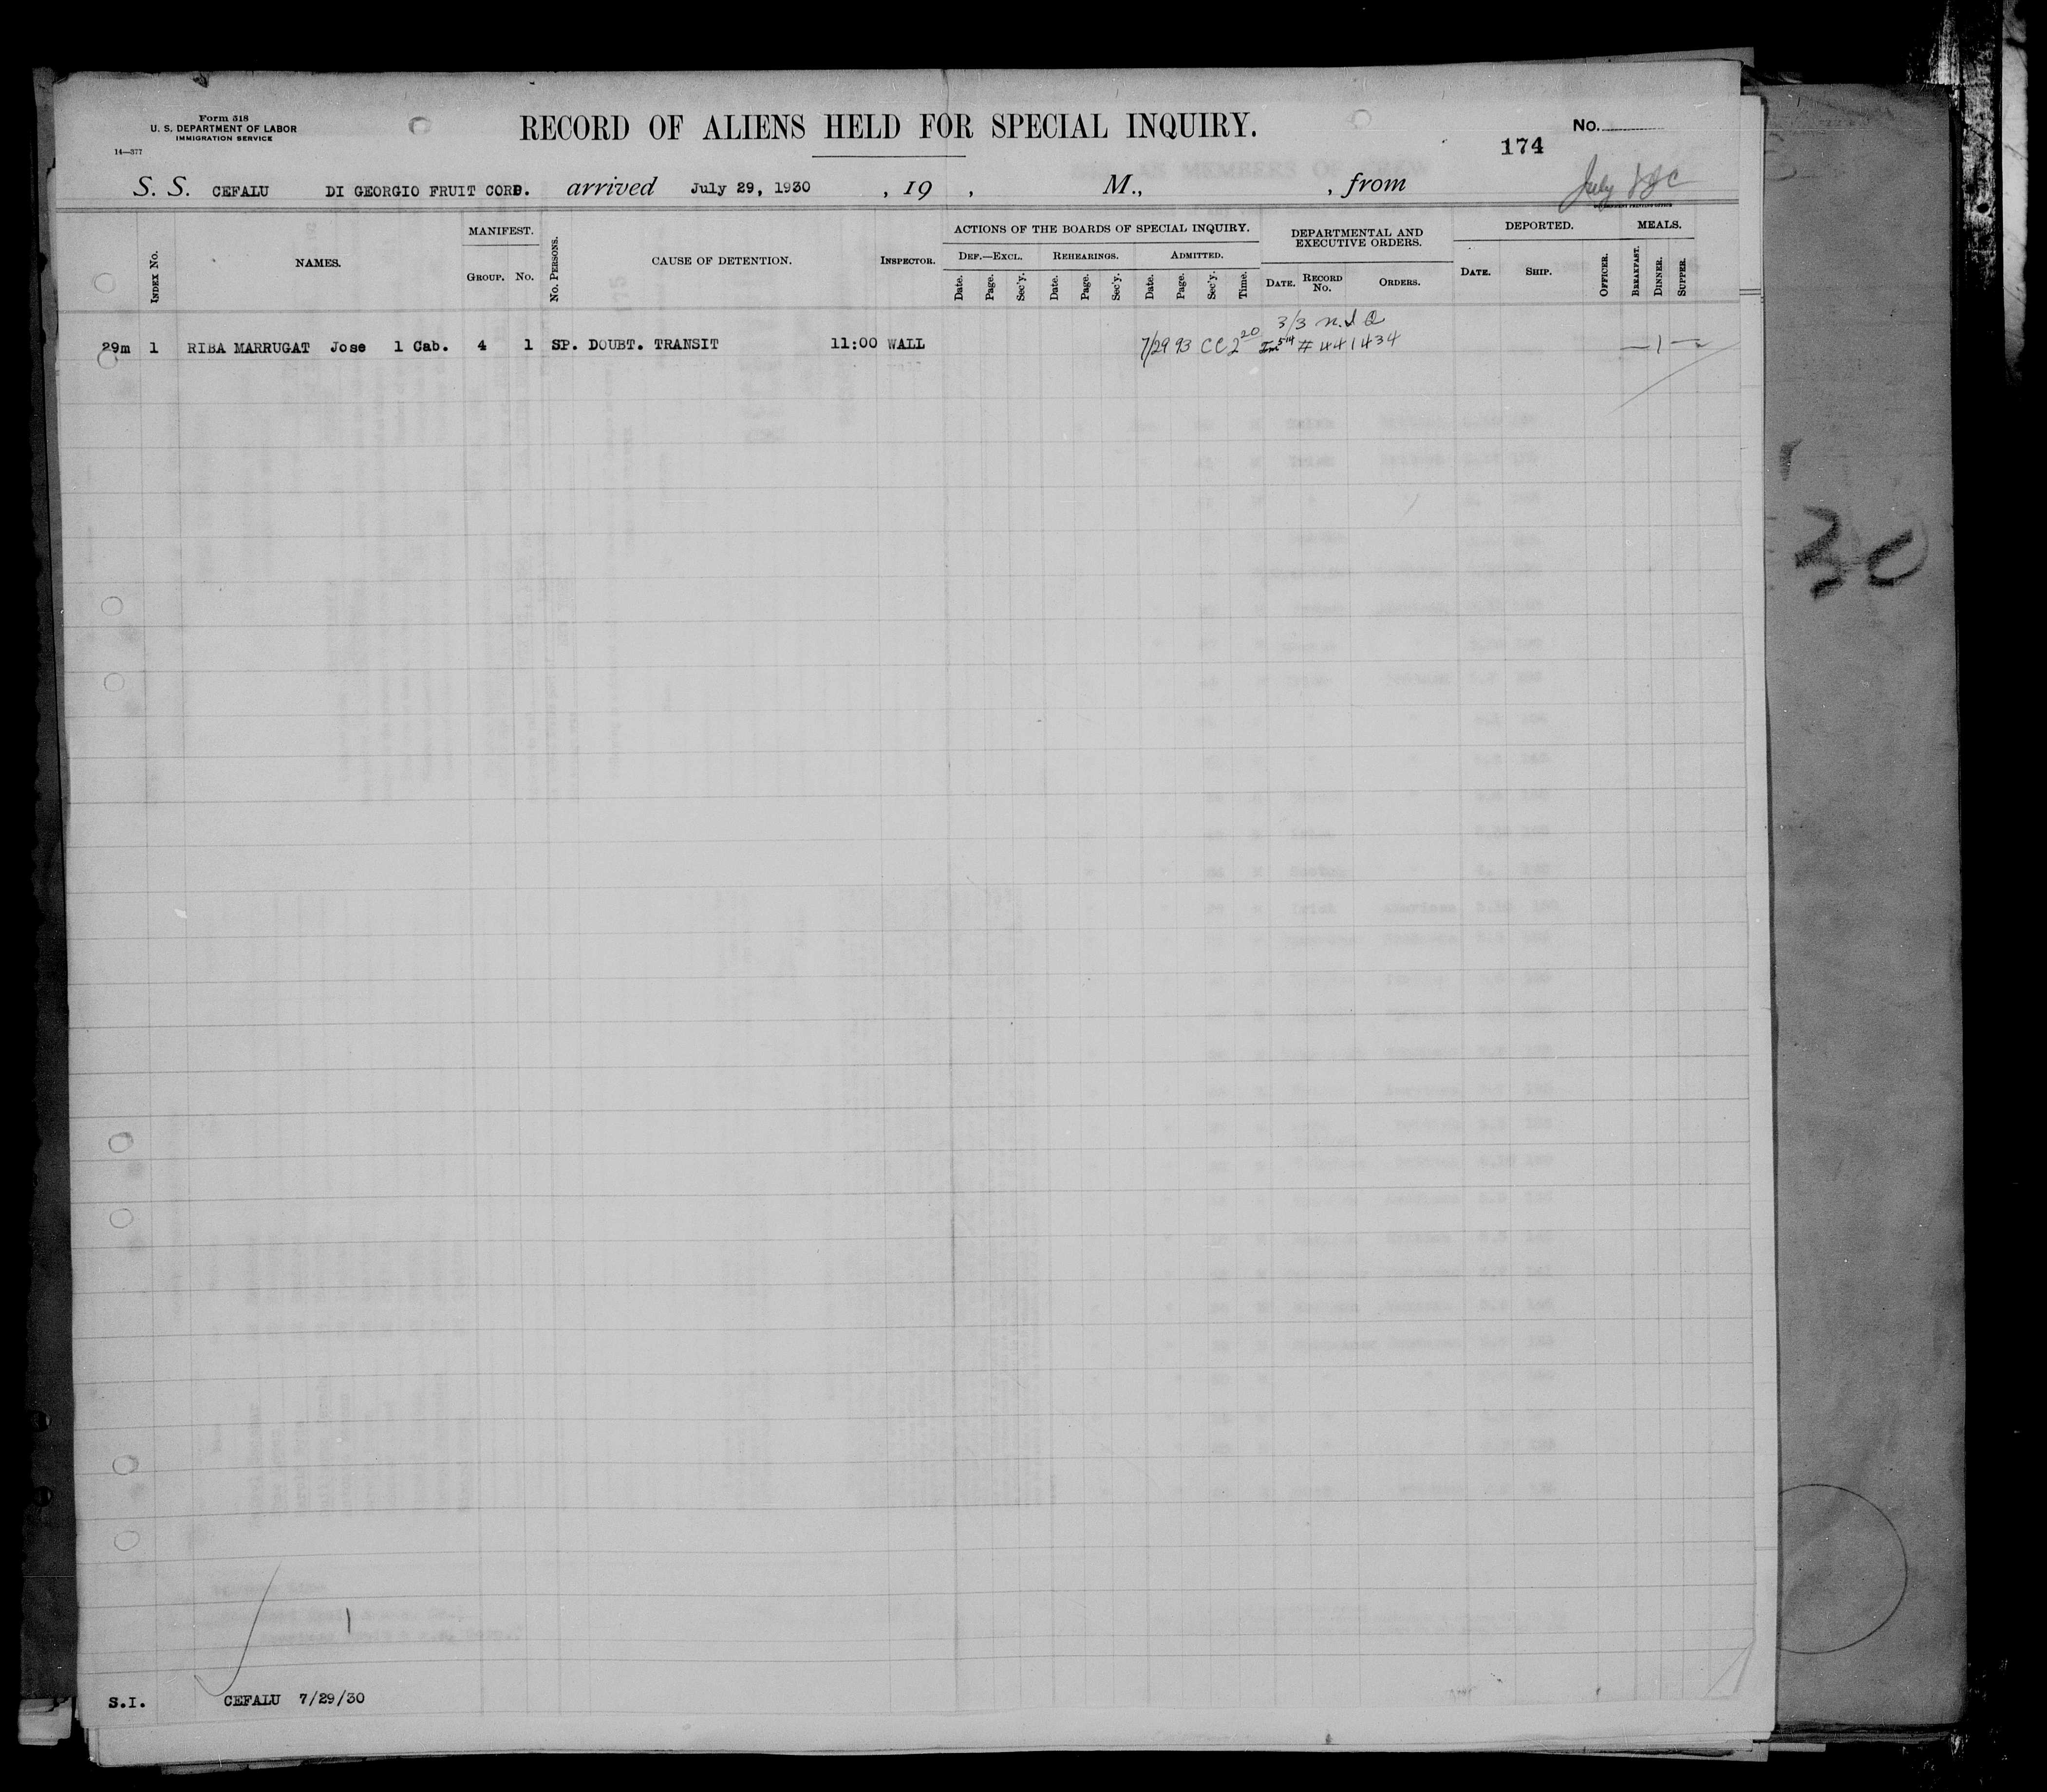 Form 518
U. S. DEPARTMENT OF LABOR
IMMIGRATION SERVICE
14—377
RECORD OF ALIENS HELD FOR SPECIAL INQUIRY.
No.
174
S. S. CEFALU DI GEORGIO FRUIT CORP. arrived July 29, 1930 , 19 , M., , from
July
INDEX No.
NAMES.
MANIFEST.
GROUP. No.
No. PERSONS.
CAUSE OF DETENTION.
INSPECTOR.
ACTIONS OF THE BOARDS OF SPECIAL INQUIRY.
DEF.—EXCL. REHEARINGS. ADMITTED.
Date. Page. Sec'y. Date. Page. Sec'y. Date. Page. Sec'y. Time.
DEPARTMENTAL AND
EXECUTIVE ORDERS.
DATE. RECORD No. ORDERS.
DEPORTED.
DATE. SHIP. OFFICER.
MEALS.
BREAKFAST. DINNER. SUPPER.
3/3
29m 1 RIBA MARRUGAT Jose 1 Cab. 4 1 SP. DOUBT. TRANSIT 11:00 WALL 7/29 93 CC 2 20 # 441434 — 1 —
30
1
S.I. CEFALU 7/29/30